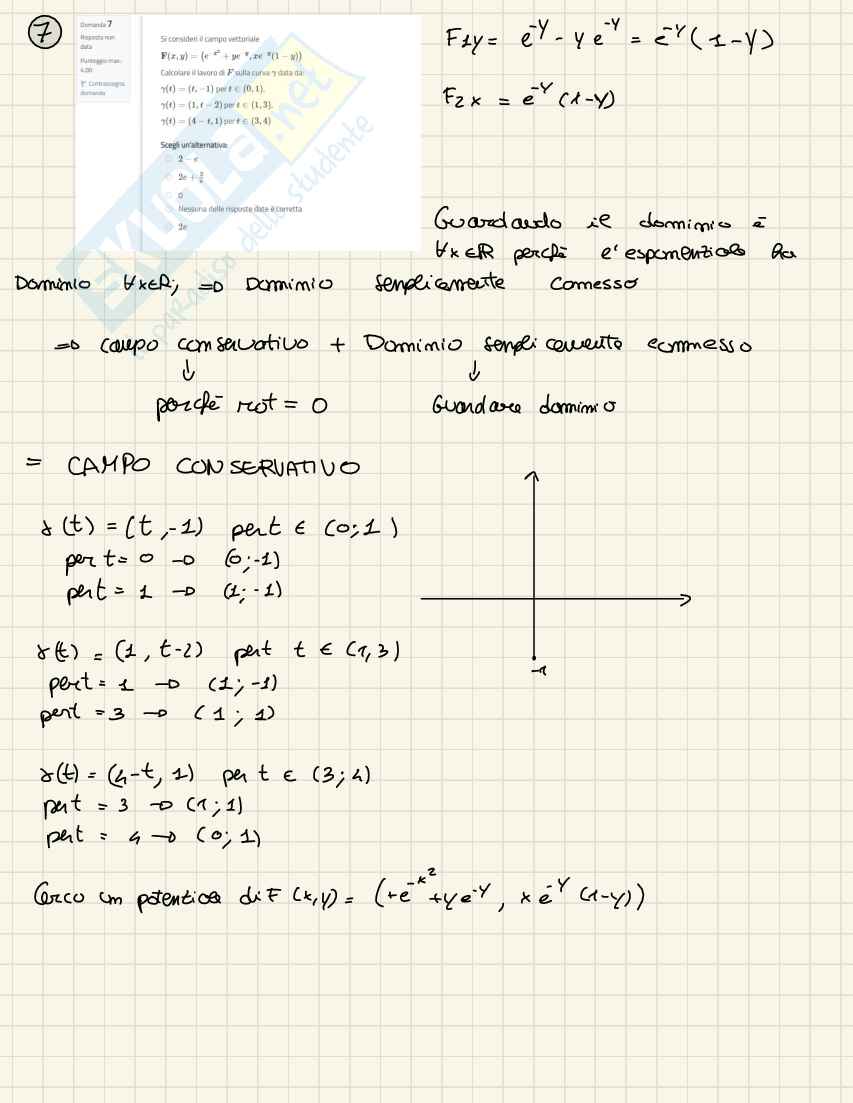 7
Domanda 7
Risposta non data
Punteggio max.: 4,00
Contrassegna domanda
Si consideri il campo vettoriale
F(x, y) = (e^{-x²} + ye^{-y}, xe^{-y}(1 − y))
Calcolare il lavoro di F sulla curva γ data da:
γ(t) = (t, −1) per t ∈ (0, 1),
γ(t) = (1, t − 2) per t ∈ (1, 3),
γ(t) = (4 − t, 1) per t ∈ (3, 4)
Scegli un'alternativa:
2 − e
2e + 2/e
0
Nessuna delle risposte date è corretta
2e
SKUOLA.net
il paradiso dello studente
F1y = e^{-y} - y e^{-y} = e^{-y} (1-y)
F2x = e^{-y} (1-y)
Guardando il dominio è
∀x∈R perchè l'esponenziale ha
Dominio ∀x∈R, => Dominio semplicemente connesso
=> campo conservativo + Dominio semplicemente connesso
↓ ↓
perchè rot = 0 Guardare dominio
= CAMPO CONSERVATIVO
γ(t) = (t, -1) per t ∈ (0; 1)
per t = 0 → (0; -1)
per t = 1 → (1; -1)
γ(t) = (1, t-2) per t t ∈ (1, 3)
per t = 1 → (1; -1)
per t = 3 → (1; 1)
-1
γ(t) = (4-t, 1) per t ∈ (3; 4)
per t = 3 → (1; 1)
per t = 4 → (0; 1)
Cerco un potenziale di F (x,y) = (+e^{-x²} + y e^{-y}, x e^{-y} (1-y))